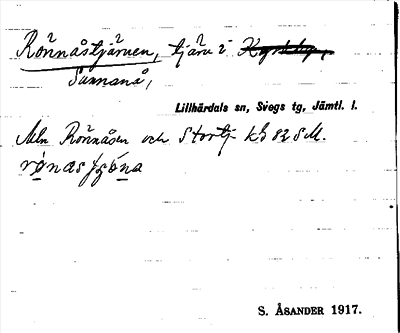 Rönnåstjärnen, tjärn i
Sunnanå,
Lillhärdals sn, Svegs tg, Jämtl. l.
Mln Rönnåsen och Stortj. kb 82 SM.
S. ÅSANDER 1917.